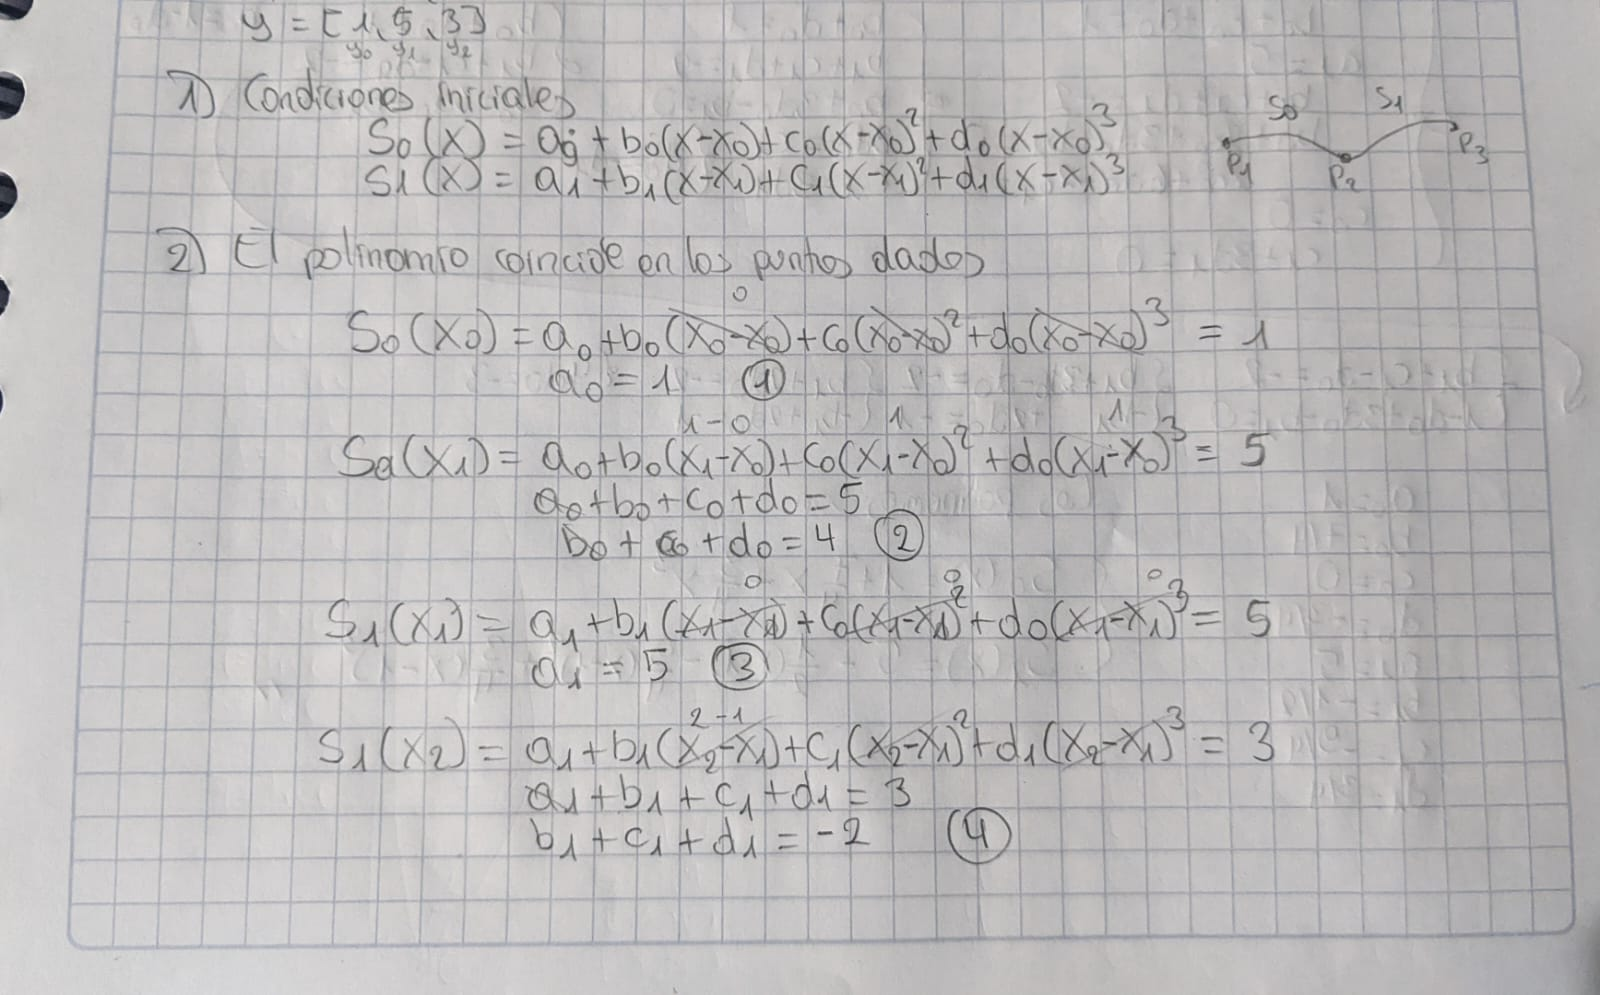 y = [1, 5, 3]
y0 y1 y2
1) Condiciones iniciales
S0(x) = a0 + b0(x-x0) + c0(x-x0)² + d0(x-x0)³
S1(x) = a1 + b1(x-x1) + c1(x-x1)² + d1(x-x1)³
S0 S1
P1 P2 P3
2) El polinomio coincide en los puntos dados
0
S0(x0) = a0 + b0(x0-x0) + c0(x0-x0)² + d0(x0-x0)³ = 1
a0 = 1 ①
1-0 1 1
Sa(x1) = a0 + b0(x1-x0) + c0(x1-x0)² + d0(x1-x0)³ = 5
a0 + b0 + c0 + d0 = 5
b0 + c0 + d0 = 4 ②
0 0 0
S1(x1) = a1 + b1(x1-x1) + c0(x1-x1)² + d0(x1-x1)³ = 5
a1 = 5 ③
2-1
S1(x2) = a1 + b1(x2-x1) + c1(x2-x1)² + d1(x2-x1)³ = 3
a1 + b1 + c1 + d1 = 3
b1 + c1 + d1 = -2 ④